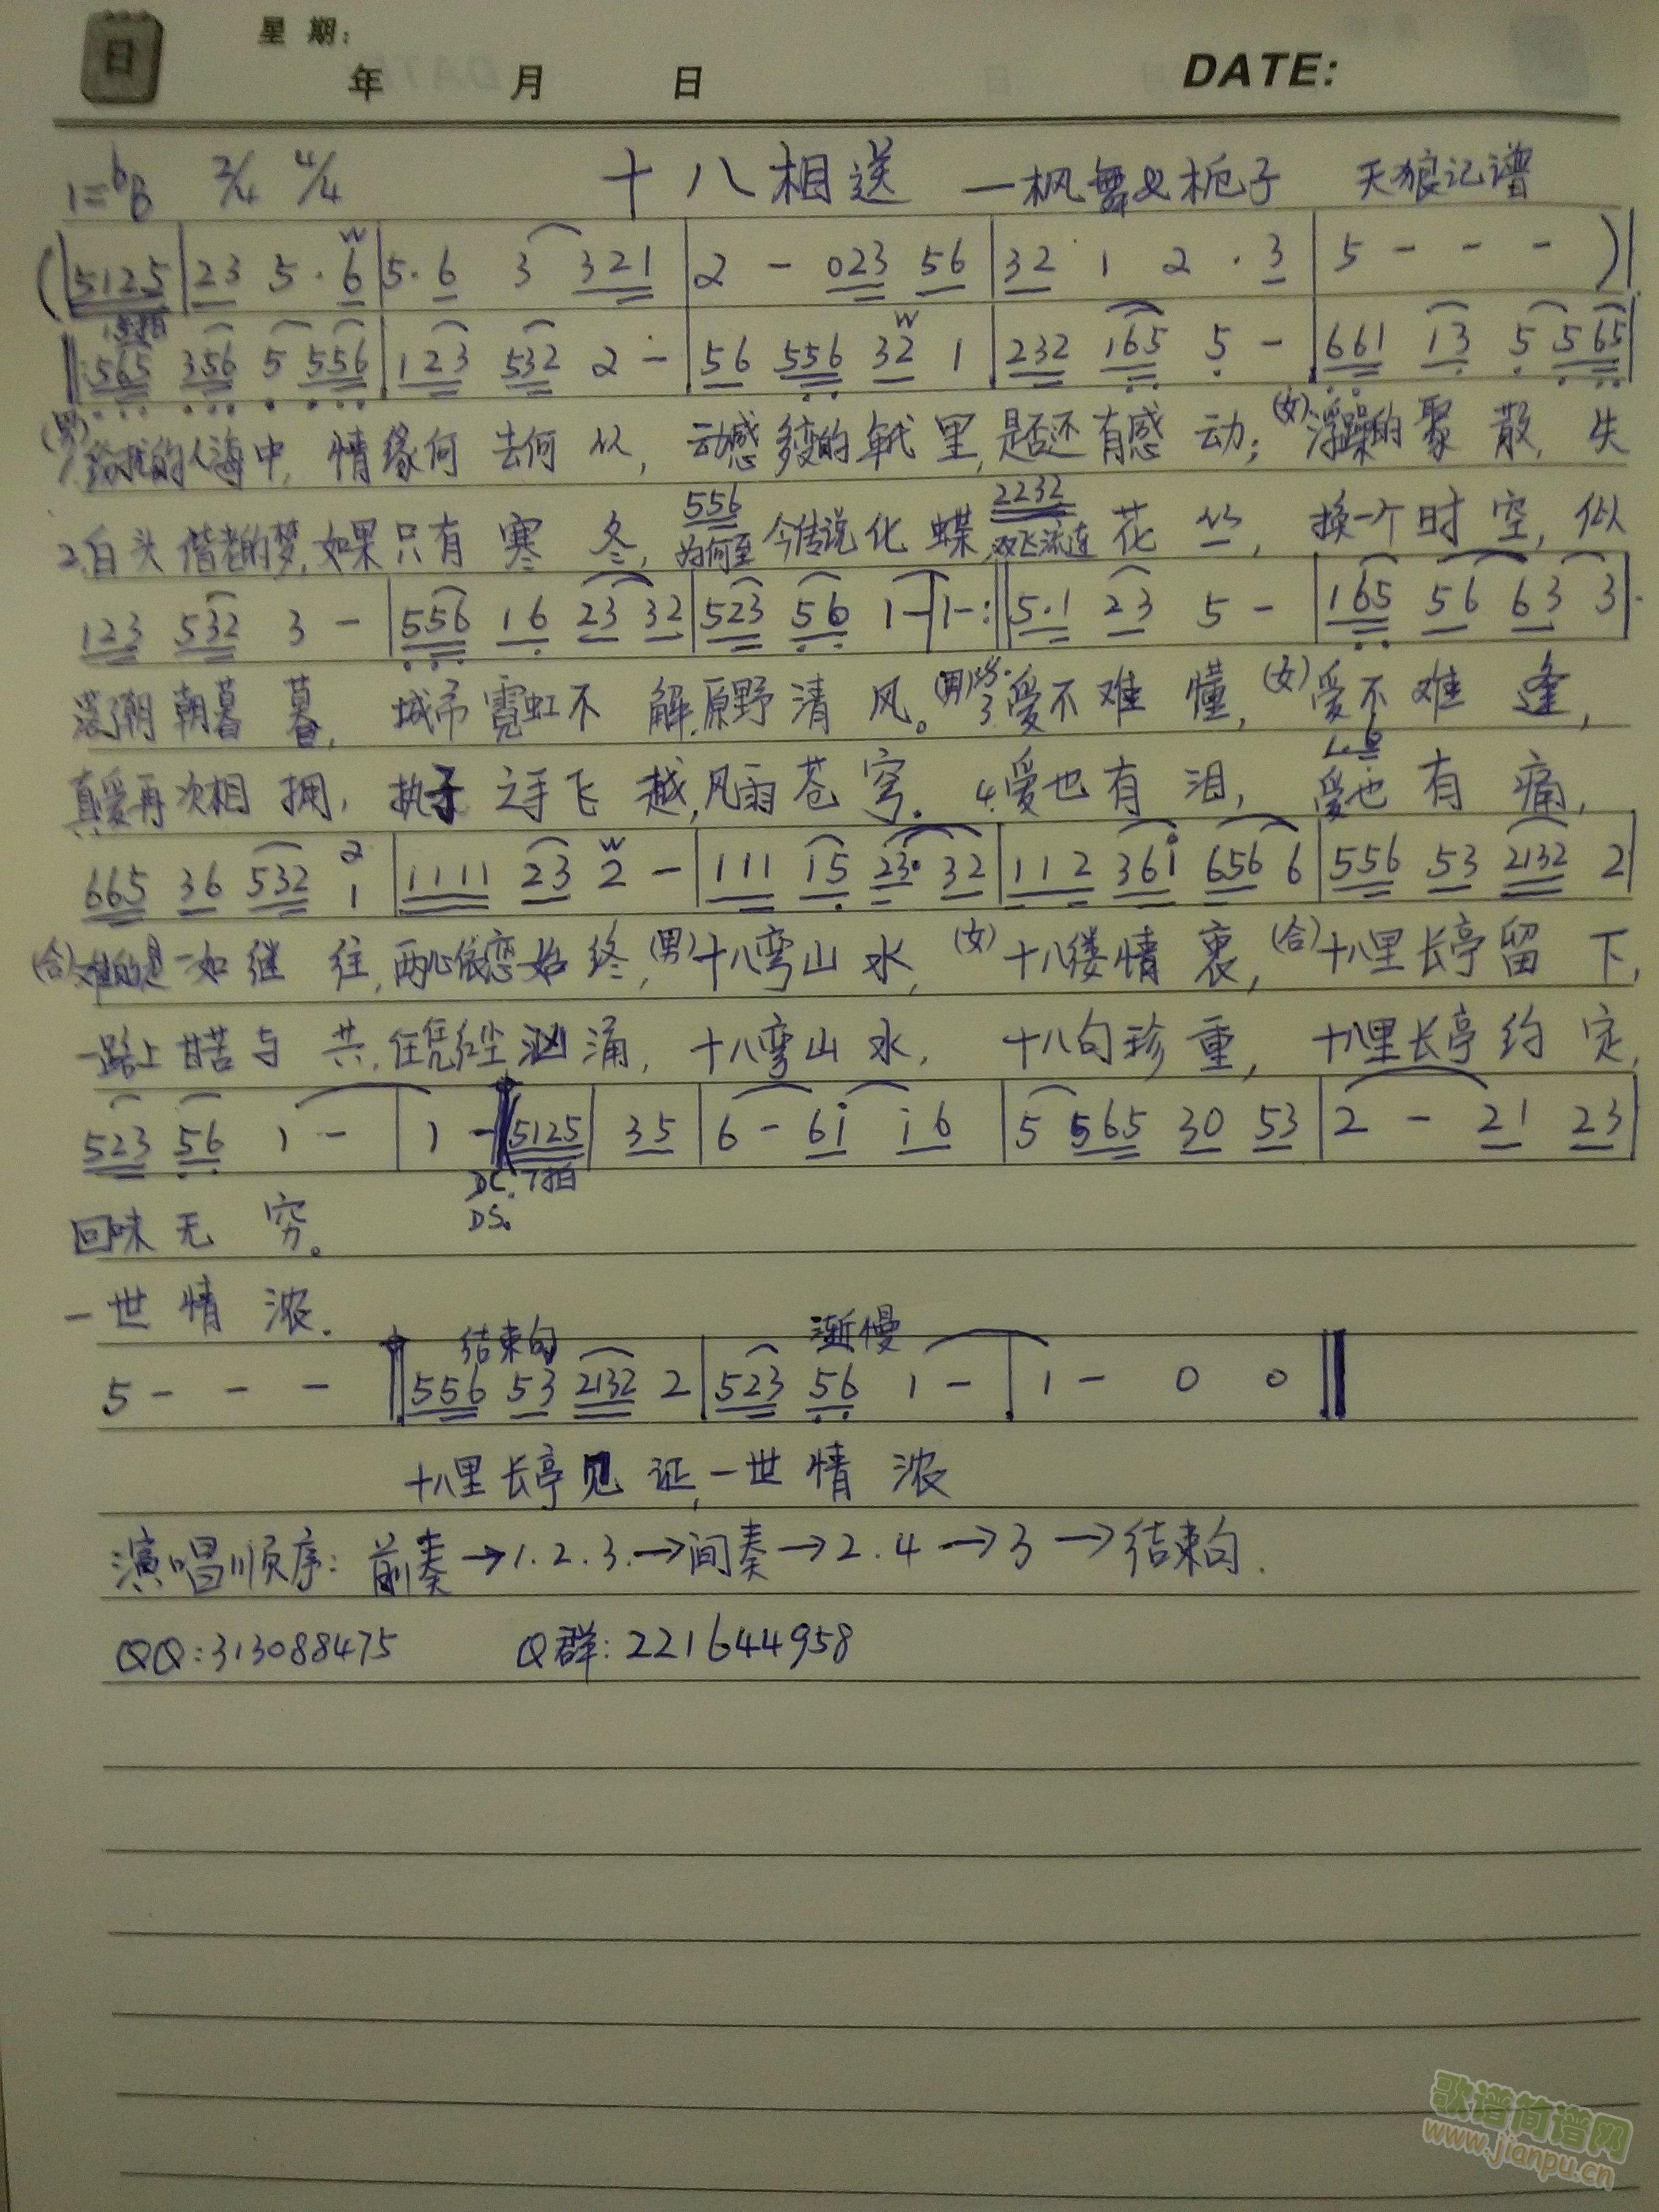 日 星期:
年 月 日 DATE:
1=bB 2/4 4/4 十八相送 —枫舞&栀子 天狼记谱
(5125|23 5·6|5·6 3 321|2 - 023 56|32 1 2·3|5 - - -)|
‖:565 356 5 556|123 532 2 -|56 556 32 1|232 165 5 -|661 13 5 565|
(男)1.纷扰的人海中,情缘何去何从,动感多变的年代里,是否还有感动;(女)浮躁的聚散,失
556 2232
2.白头偕老的梦,如果只有寒冬,为何至今传说化蝶,双飞流连花丛,换一个时空,似
123 532 3 -|556 16 23 32|523 56 1 -|1 -:‖5·1 23 5 -|165 56 63 3|
落了朝朝暮暮,城市霓虹不解,原野清风。(男)3.爱不难懂,(女)爱不难逢,
1·6
真爱再次相拥,执子之手飞越,风雨苍穹。4.爱也有泪,爱也有痛,
2
665 36 532 1|1111 23 2 -|111 15 23 32|112 361 656 6|556 53 2132 2|
(合)难的是一如继往,两心依恋始终,(男)十八弯山水,(女)十八缕情衷,(合)十八里长亭留下,
一路上甘苦与共,任凭红尘汹涌,十八弯山水,十八句珍重,十八里长亭约定,
523 56 1 -|1 -‖(5125|35|6 - 61 16|5 565 30 53|2 - 21 23|
D.C. 7拍
回味无穷。 D.S.
一世情浓.
结束句 渐慢
5 - - -‖556 53 2132 2|523 56 1 -|1 - 0 0‖
十八里长亭见证,一世情浓
演唱顺序:前奏→1.2.3.→间奏→2.4→3→结束句.
QQ:313088475 Q群:221644958
歌谱简谱网
www.jianpu.cn